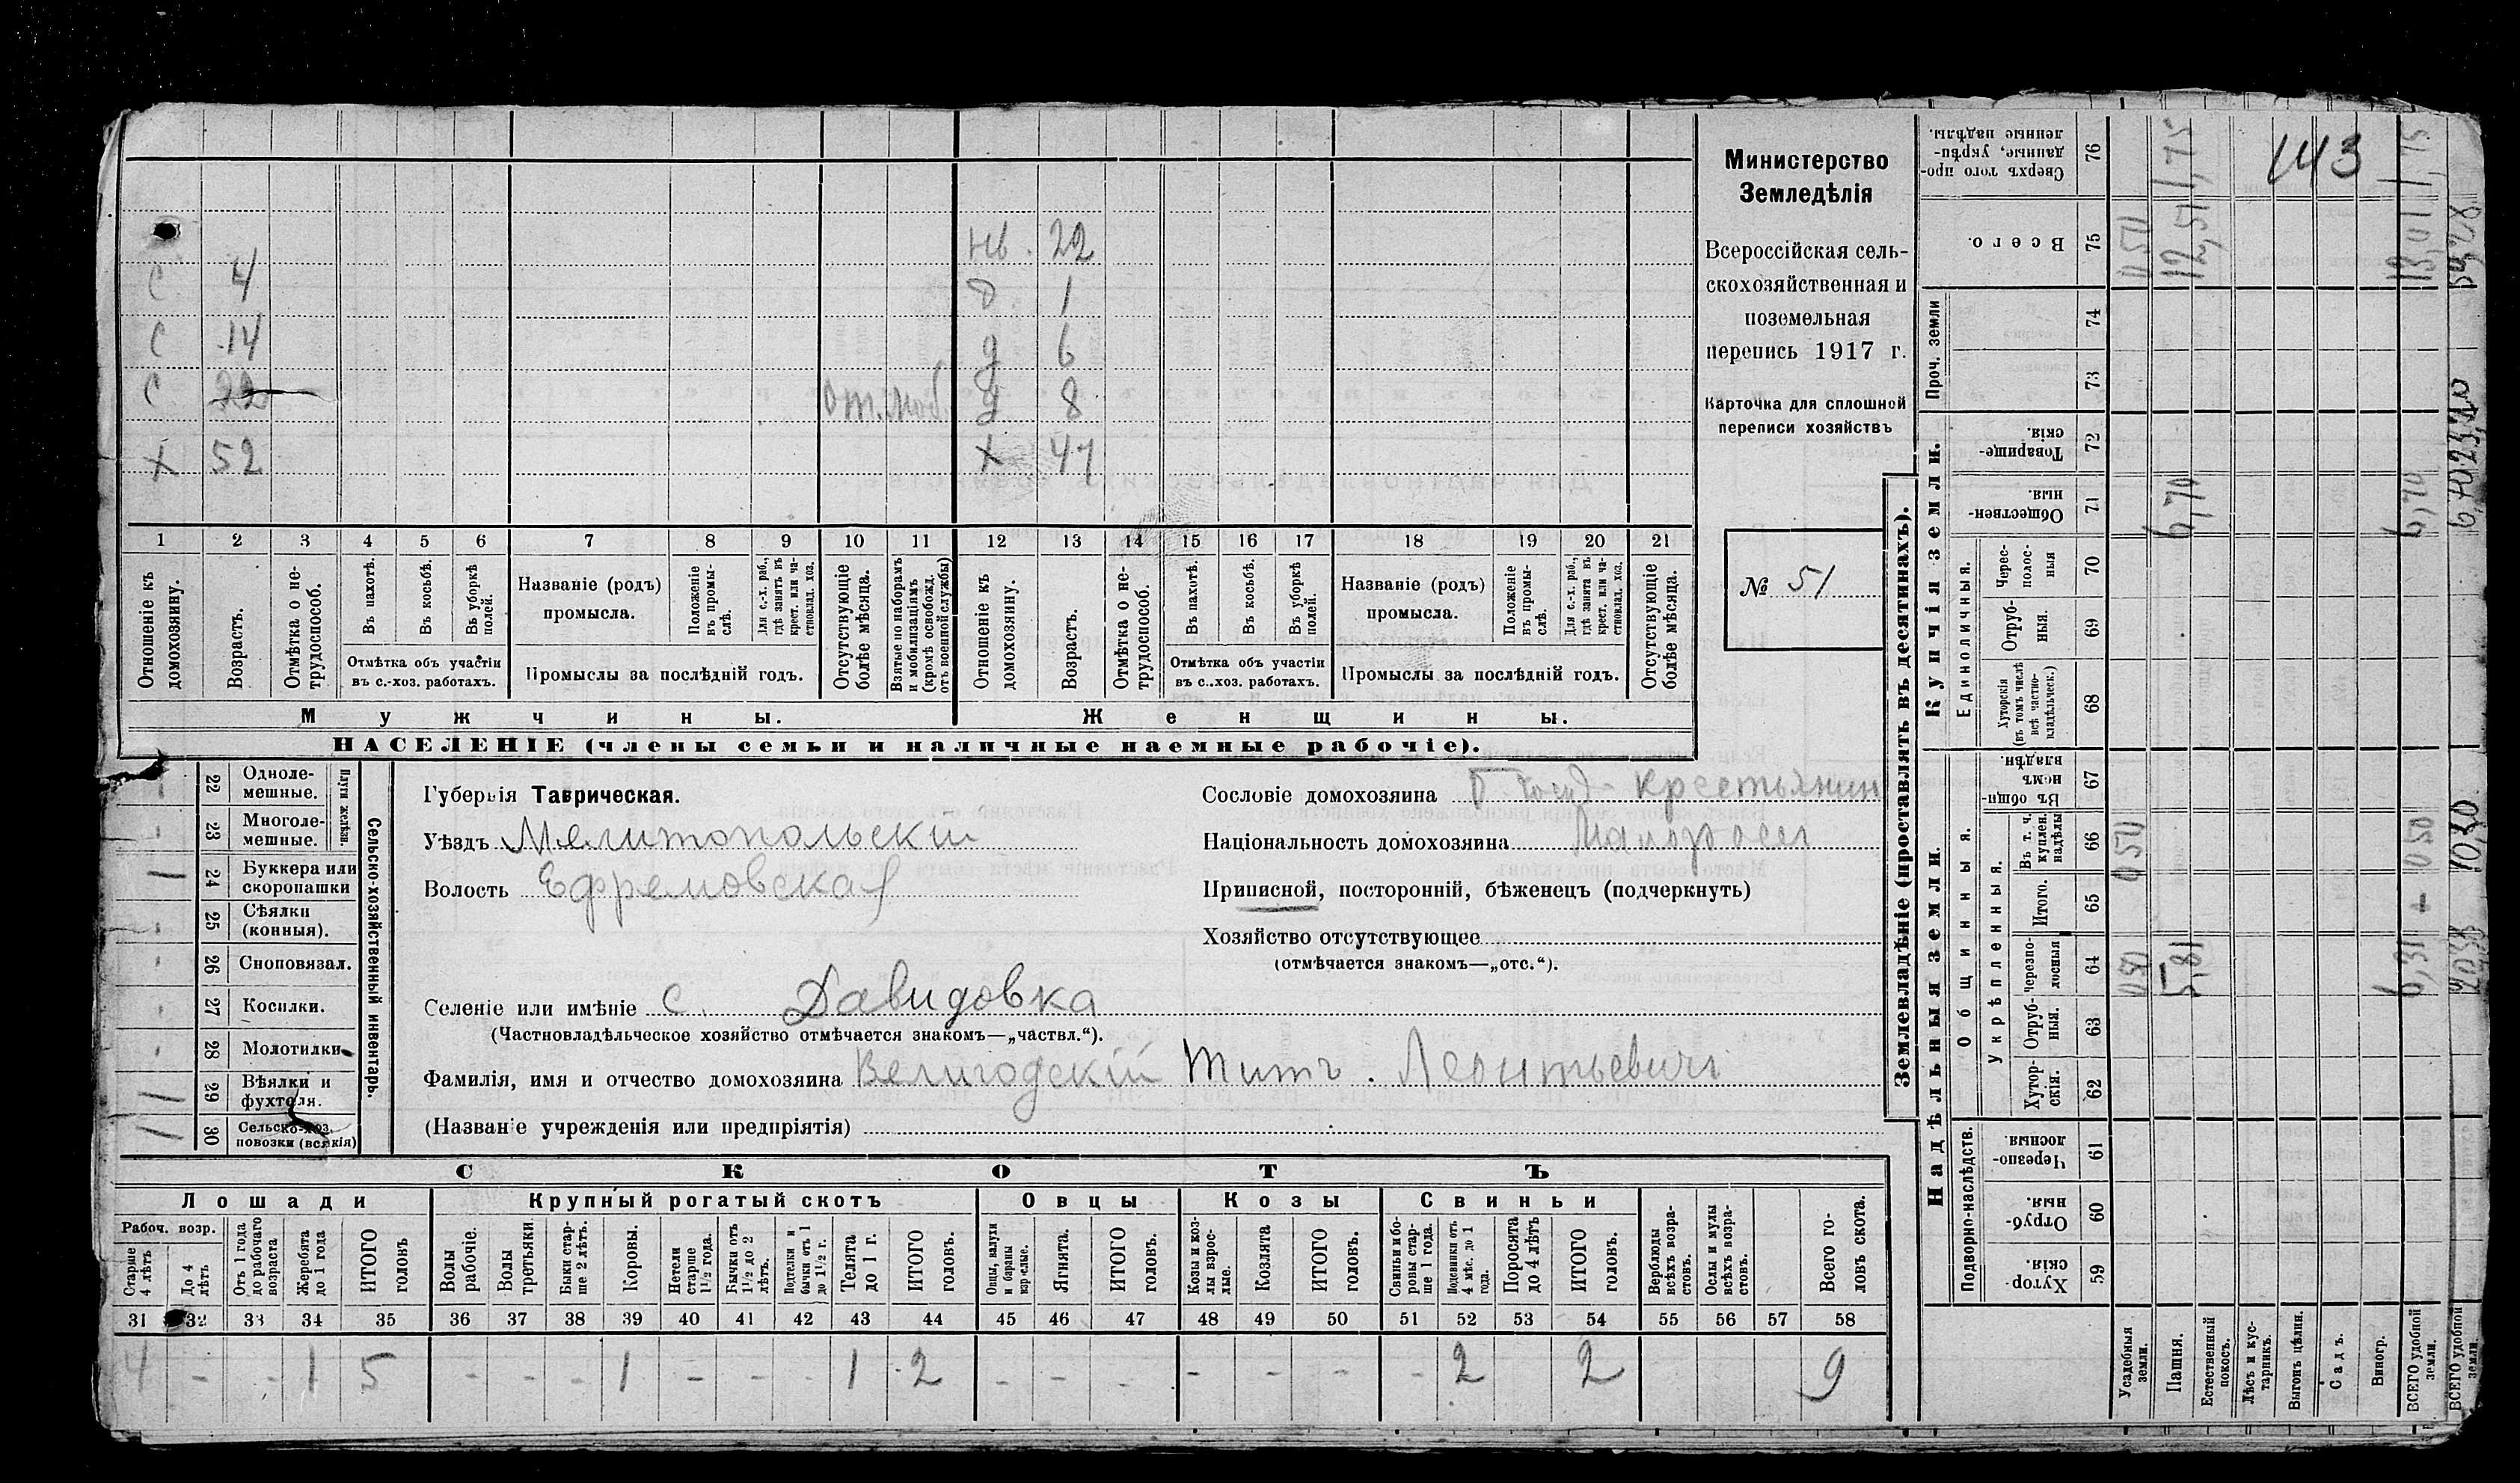 143
Министерство
Земледѣлія
Всероссійская сель-
скохозяйственная и
поземельная
перепись 1917 г.
Карточка для сплошной
переписи хозяйствъ
№ 51
нв. 22
с 4 д 1
с 14 д 6
с 22 от. моб. д 8
х 52 х 47
1 2 3 4 5 6 7 8 9 10 11 12 13 14 15 16 17 18 19 20 21
Отношеніе къ домохозяину.
Возрастъ.
Отмѣтка о не-трудоспособ.
Въ пахотѣ.
Въ косьбѣ.
Въ уборкѣ полей.
Отмѣтка объ участіи
въ с.-хоз. работахъ.
Названіе (родъ)
промысла.
Положеніе въ промы-слѣ.
Для с.-х. раб., гдѣ занятъ въ крест. или ча-стновлад. хоз.
Промыслы за послѣдній годъ.
Отсутствующіе болѣе мѣсяца.
Взятые по наборамъ и мобилизаціямъ (кромѣ освобожд. отъ военной службы)
Отношеніе къ домохозяину.
Возрастъ.
Отмѣтка о не-трудоспособ.
Въ пахотѣ.
Въ косьбѣ.
Въ уборкѣ полей.
Отмѣтка объ участіи
въ с.-хоз. работахъ.
Названіе (родъ)
промысла.
Положеніе въ промы-слѣ.
Для с.-х. раб., гдѣ занятъ въ крест. или ча-стновлад. хоз.
Промыслы за послѣдній годъ.
Отсутствующіе болѣе мѣсяца.
Мужчины. Женщины.
НАСЕЛЕНІЕ (члены семьи и наличные наемные рабочіе).
Сельско-хозяйственный инвентарь.
Плуги желѣзн.
22 Одноле-мешные.
23 Многоле-мешные.
24 Буккера или скоропашки 1
25 Сѣялки (конныя).
26 Сноповязал.
27 Косилки.
28 Молотилки
29 Вѣялки и фухтеля. 1
30 Сельско-хоз. повозки (всякія) 1
Губернія Таврическая.
Уѣздъ Мелитопольскій
Волость Ефремовская
Селеніе или имѣніе с. Давидовка
(Частновладѣльческое хозяйство отмѣчается знакомъ—„частвл.“).
Фамилія, имя и отчество домохозяина Велигодскій Титъ. Леонтьевичъ
(Названіе учрежденія или предпріятія)
Сословіе домохозяина крестьянин
Національность домохозяина Малоросъ
Приписной, посторонній, бѣженецъ (подчеркнуть)
Хозяйство отсутствующее
(отмѣчается знакомъ—„отс.“).
СКОТЪ
Лошади Крупный рогатый скотъ Овцы Козы Свиньи
Рабоч. возр.
Старше 4 лѣтъ
До 4 лѣтъ
Отъ 1 года до рабочаго возраста
Жеребята до 1 года
ИТОГО головъ
Волы рабочіе.
Волы третьяки.
Быки стар-ше 2 лѣтъ.
Коровы.
Нетели старше 1½ года.
Бычки отъ 1½ до 2 лѣтъ.
Подтелки и бычки отъ 1 до 1½ г.
Телята до 1 г.
ИТОГО головъ.
Овцы, валухи и бараны взрослые.
Ягнята.
ИТОГО головъ.
Козы и коз-лы взрос-лые.
Козлята
ИТОГО головъ.
Свиньи и бо-ровы стар-ше 1 года.
Подсвинки отъ 4 мѣс. до 1 года.
Поросята до 4 лѣтъ
ИТОГО головъ.
Верблюды всѣхъ возра-стовъ.
Ослы и мулы всѣхъ возра-стовъ.
Всего го-ловъ скота.
31 32 33 34 35 36 37 38 39 40 41 42 43 44 45 46 47 48 49 50 51 52 53 54 55 56 57 58
4 - - 1 5 - - - 1 - - - 1 2 - - - - - - - 2 2 9
Землевладѣніе (проставлять въ десятинахъ).
Купчія земли.
Надѣльныя земли.
Проч. земли
Единоличныя.
Общинныя.
Укрѣпленныя.
Подворно-наслѣдств.
76 Сверхъ того про-данные, укрѣп-ленные надѣлы. 1,75 1,75
75 Всего. 0 50 12,51 13,01
74
73
72 Товарище-скія.
71 Обществен-ныя. 6,70 6,70
70 Черес-полос-ныя
69 Отруб-ныя.
68 Хуторскія (въ томъ числѣ всѣ частно-владѣльческ.)
67 Въ общи-номъ владѣн.
66 Въ т. ч. купчен. надѣлы 0 50 0 50
65 Итого.
64 Черезпо-лосныя 5,81 6,31
63 Отруб-ныя.
62 Хутор-скія.
61 Черезпо-лосныя.
60 Отруб-ныя.
59 Хутор-скія.
Усадебныя земли.
Пашня.
Естественный покосъ.
Лѣсъ и кус-тарникъ.
Выгонъ цѣлин.
Садъ.
Виногр.
ВСЕГО удобной земли.
ВСЕГО удобной земли.